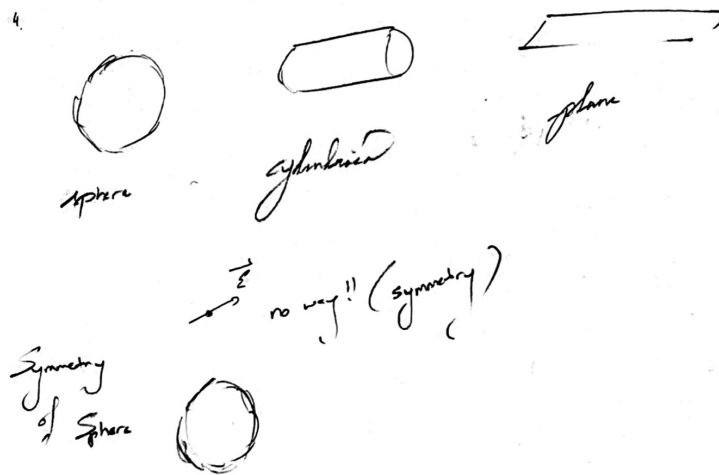 4.
sphere
cylindrical
plane
E
no way!! (symmetry)
Symmetry
of Sphere